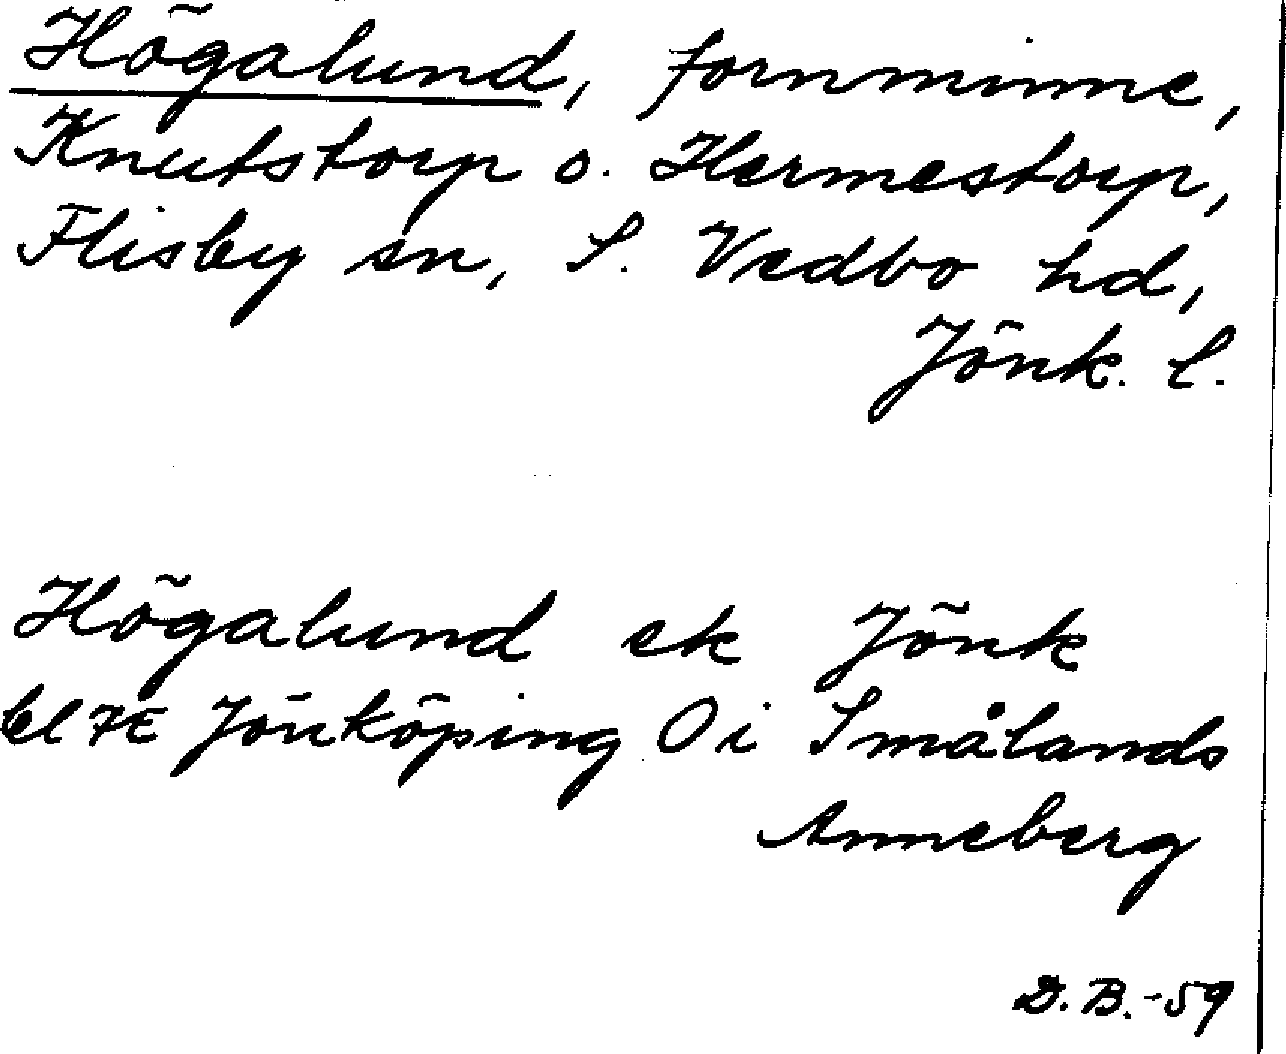 Högalund, fornminne,
Knutstorp o. Hermestorp,
Flisby sn, S. Vedbo hd,
Jönk. l.
Högalund ek Jönk
bl 7E Jönköping Oi Smålands
Anneberg
D.B.-59